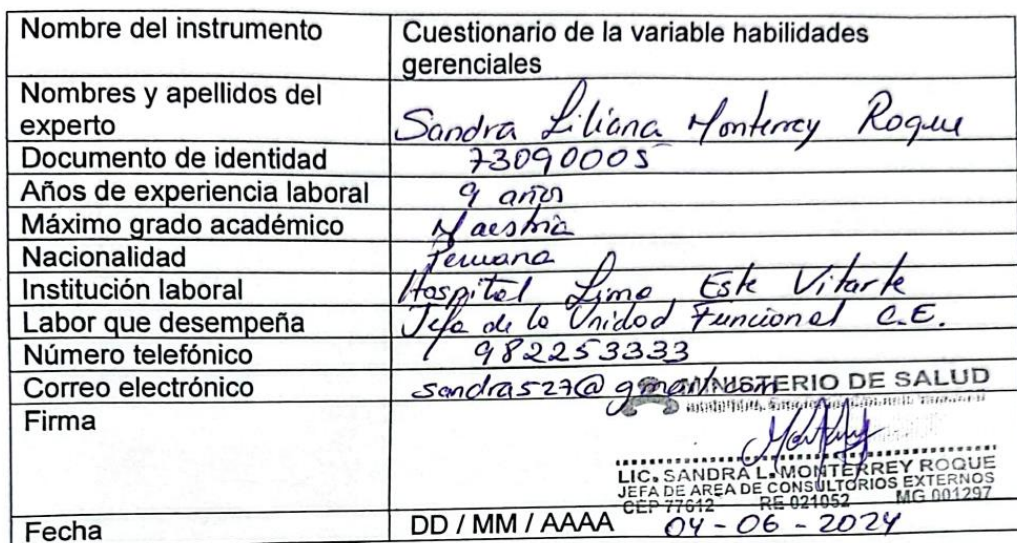 Nombre del instrumento Cuestionario de la variable habilidades
gerenciales
Nombres y apellidos del
experto Sandra Liliana Monterrey Roque
Documento de identidad 73090005
Años de experiencia laboral 9 años
Máximo grado académico Maestría
Nacionalidad Peruana
Institución laboral Hospital Lima Este Vitarte
Labor que desempeña Jefa de la Unidad Funcional C.E.
Número telefónico 982253333
Correo electrónico sandras27@gmail.com
MINISTERIO DE SALUD
Firma
LIC. SANDRA L. MONTERREY ROQUE
JEFA DE AREA DE CONSULTORIOS EXTERNOS
CEP 77612 RE 021052 MG 001297
Fecha DD / MM / AAAA 04 - 06 - 2024